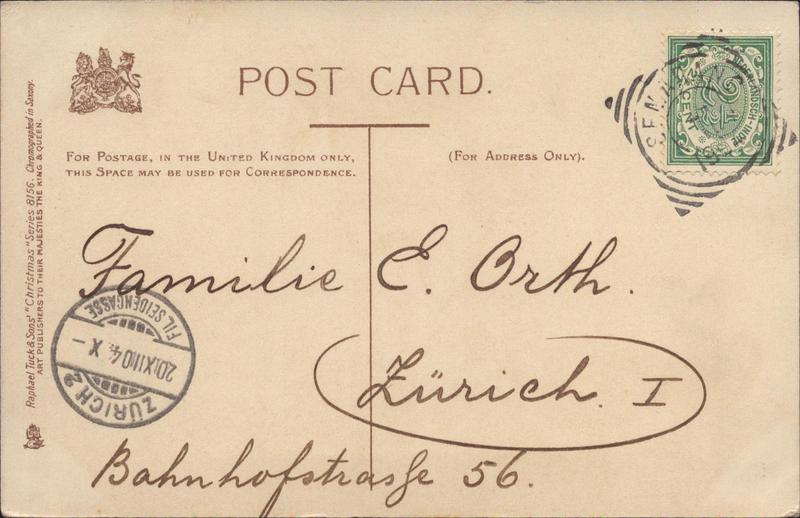 POST CARD.
FOR POSTAGE, IN THE UNITED KINGDOM ONLY,
THIS SPACE MAY BE USED FOR CORRESPONDENCE.
(FOR ADDRESS ONLY).
Raphael Tuck & Sons' "Christmas" Series 8156. Chromographed in Saxony.
ART PUBLISHERS TO THEIR MAJESTIES THE KING & QUEEN.
Familie E. Orth.
Zürich. I
Bahnhofstrasse 56.
FIL. SEIDENGASSE
20.XII.04. X -
ZÜRICH 2
CENT